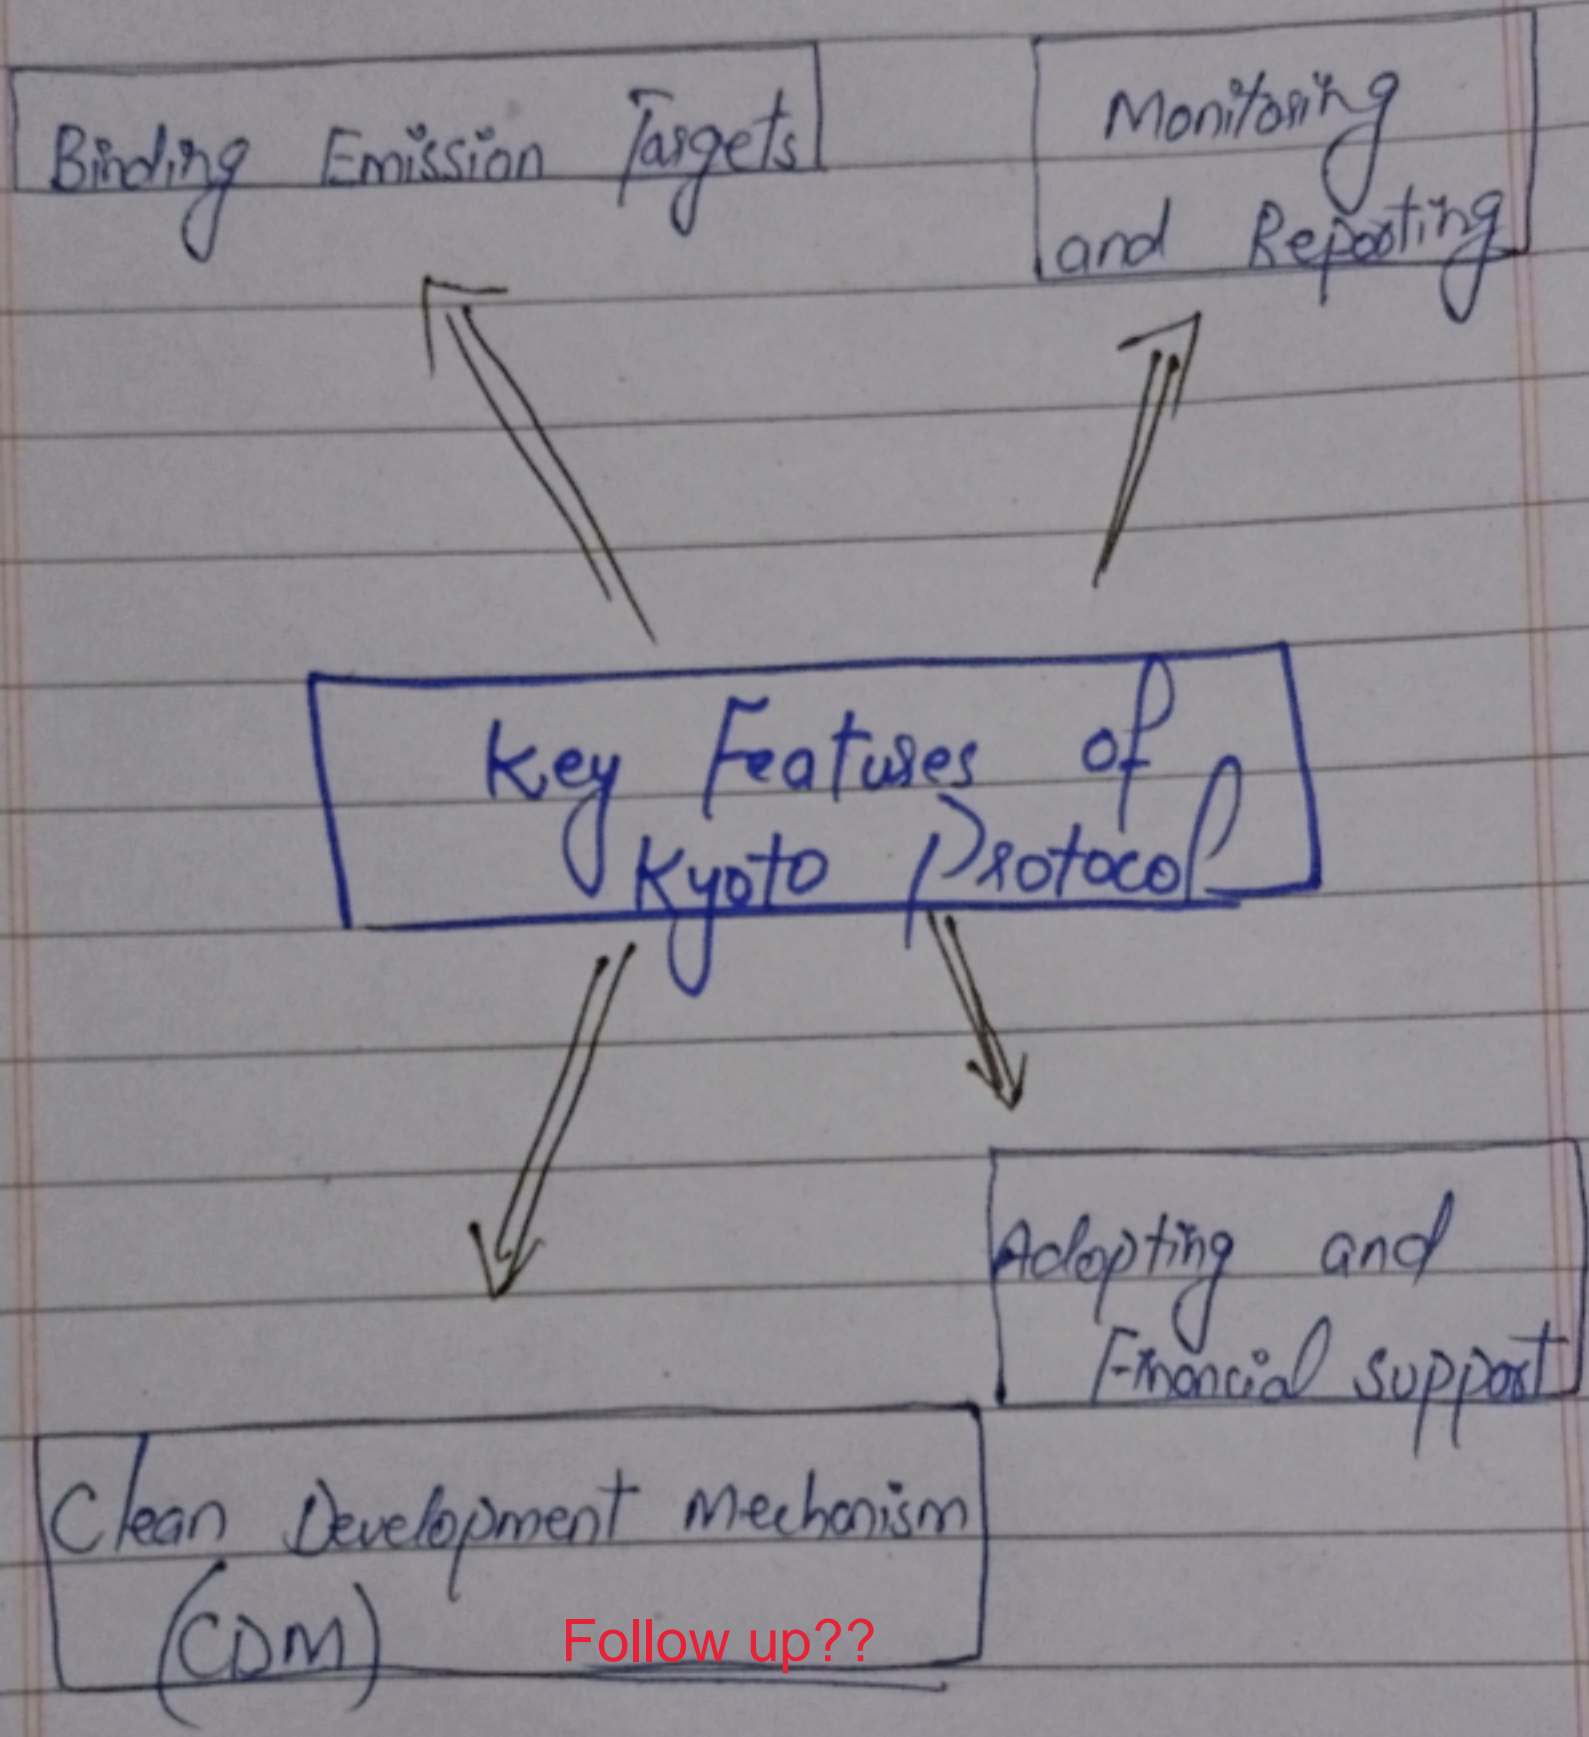 Binding Emission Targets
Monitoring
and Reporting
Key Features of
Kyoto Protocol
Adopting and
Financial support
Clean Development Mechanism
(CDM)
Follow up??